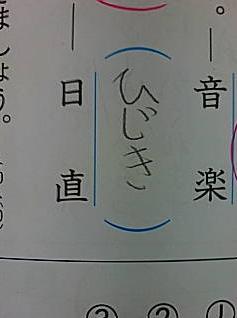 。―音楽
(ひじき)
―日直
ましょう。
① ② ③